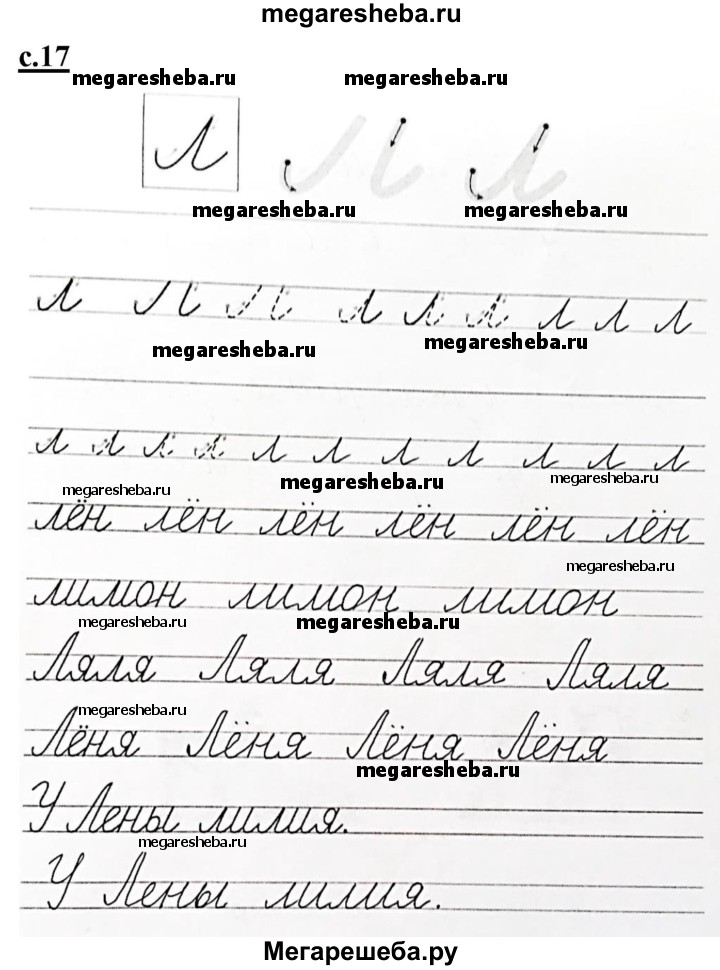 megaresheba.ru
с.17
megaresheba.ru megaresheba.ru
л л л
megaresheba.ru megaresheba.ru
л л л л л л л л л
megaresheba.ru megaresheba.ru
л л л л л л л л л л л л
megaresheba.ru megaresheba.ru megaresheba.ru
лён лён лён лён лён лён
megaresheba.ru
лимон лимон лимон
megaresheba.ru megaresheba.ru
Ляля Ляля Ляля Ляля
megaresheba.ru
Лёня Лёня Лёня Лёня
megaresheba.ru
У Лены лилия.
megaresheba.ru
У Лены лилия.
Мегарешеба.ру